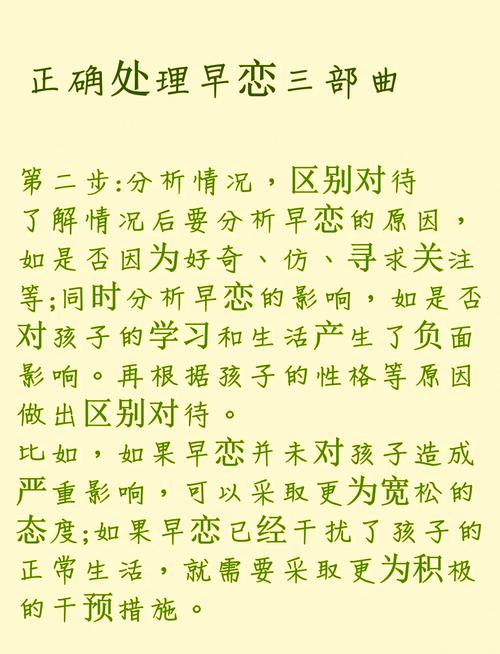 正确处理早恋三部曲
第二步:分析情况，区别对待
了解情况后要分析早恋的原因，
如是否因为好奇、仿、寻求关注
等;同时分析早恋的影响，如是否
对孩子的学习和生活产生了负面
影响。再根据孩子的性格等原因
做出区别对待。
比如，如果早恋并未对孩子造成
严重影响，可以采取更为宽松的
态度;如果早恋已经干扰了孩子的
正常生活，就需要采取更为积极
的干预措施。